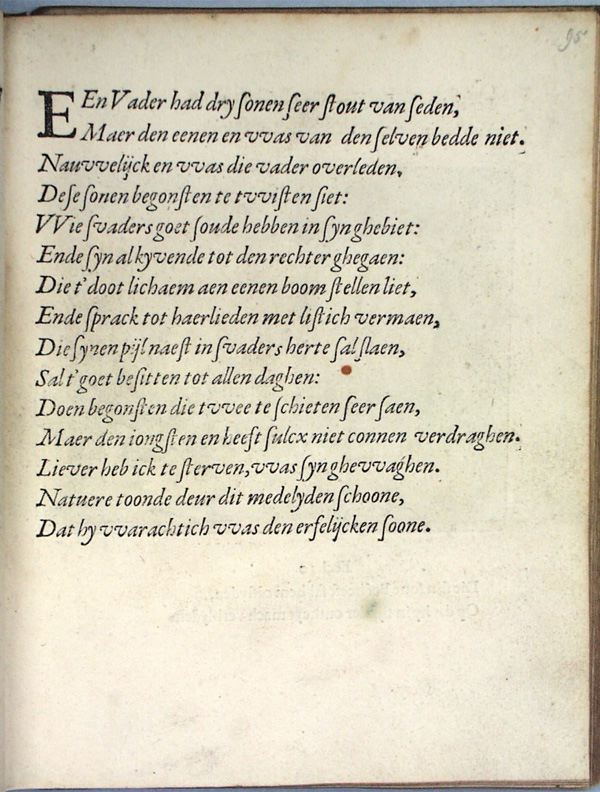 95
EEn Vader had dry ſonen ſeer ſtout van ſeden,
Maer den eenen en vvas van den ſelven bedde niet.
Nauvvelijck en vvas die vader overleden,
Deſe ſonen begonſten te tvviſten ſiet:
VVie ſvaders goet ſoude hebben in ſyn ghebiet:
Ende ſyn al kyvende tot den rechter ghegaen:
Die t'doot lichaem aen eenen boom ſtellen liet,
Ende ſprack tot haerlieden met liſtich vermaen,
Die ſynen pijl naeſt in ſvaders herte ſal ſlaen,
Sal t'goet beſitten tot allen daghen:
Doen begonſten die tvvee te ſchieten ſeer ſaen,
Maer den iongſten en heeft ſulcx niet connen verdraghen.
Liever heb ick te ſterven, vvas ſyn ghevvaghen.
Natuere toonde deur dit medelyden ſchoone,
Dat hy vvarachtich vvas den erfelijcken ſoone.